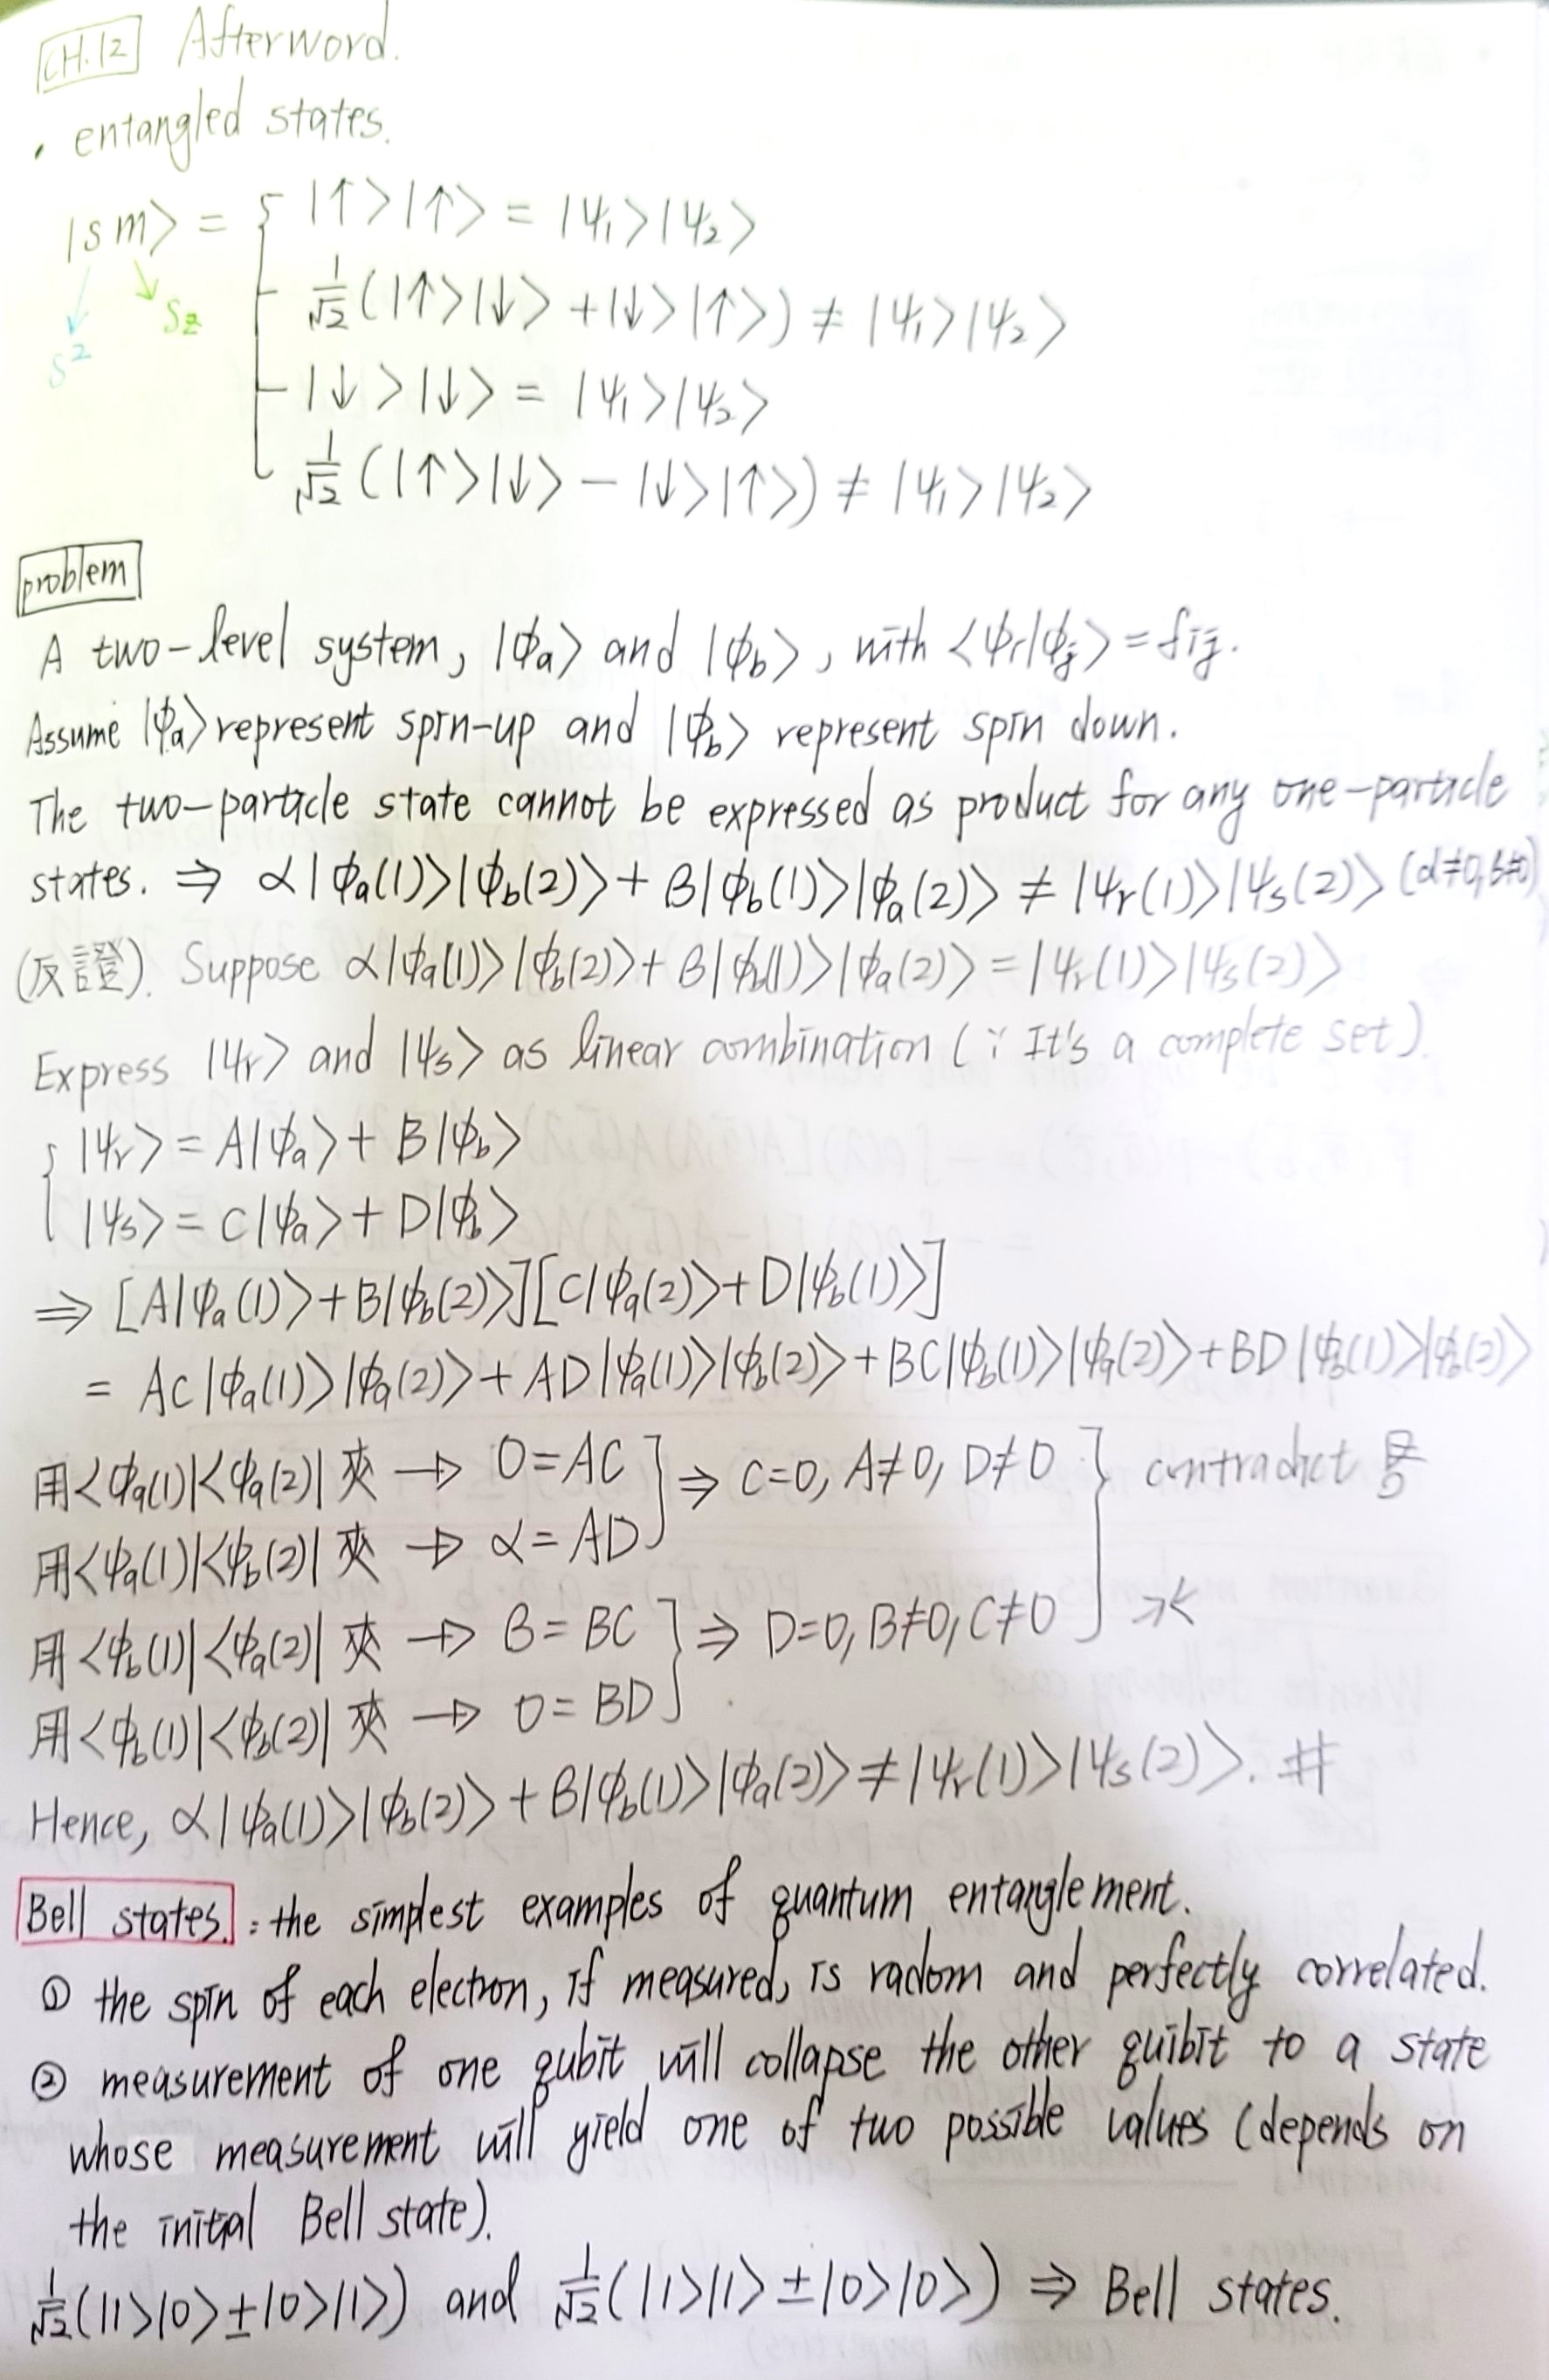 CH.12 Afterword.
• entangled states.
|s m> = { |↑>|↑> = |ψ₁>|ψ₂>
1/√2 (|↑>|↓> + |↓>|↑>) ≠ |ψ₁>|ψ₂>
|↓>|↓> = |ψ₁>|ψ₂>
1/√2 (|↑>|↓> - |↓>|↑>) ≠ |ψ₁>|ψ₂>
S² Sz
problem
A two-level system, |ϕa> and |ϕb>, with <ϕi|ϕj> = δij.
Assume |ϕa> represent spin-up and |ϕb> represent spin down.
The two-particle state cannot be expressed as product for any one-particle
states. ⇒ α|ϕa(1)>|ϕb(2)> + β|ϕb(1)>|ϕa(2)> ≠ |ψr(1)>|ψs(2)> (α≠0, β≠0)
(反證). Suppose α|ϕa(1)>|ϕb(2)> + β|ϕb(1)>|ϕa(2)> = |ψr(1)>|ψs(2)>
Express |ψr> and |ψs> as linear combination (∵ It's a complete set).
{ |ψr> = A|ϕa> + B|ϕb>
|ψs> = C|ϕa> + D|ϕb>
⇒ [A|ϕa(1)> + B|ϕb(2)>][C|ϕa(2)> + D|ϕb(1)>]
= AC|ϕa(1)>|ϕa(2)> + AD|ϕa(1)>|ϕb(2)> + BC|ϕb(1)>|ϕa(2)> + BD|ϕb(1)>|ϕb(2)>
用<ϕa(1)|<ϕa(2)| 夾 → 0 = AC ] ⇒ C=0, A≠0, D≠0 } contradict
用<ϕa(1)|<ϕb(2)| 夾 → α = AD
用<ϕb(1)|<ϕa(2)| 夾 → β = BC ] ⇒ D=0, B≠0, C≠0
用<ϕb(1)|<ϕb(2)| 夾 → 0 = BD
Hence, α|ϕa(1)>|ϕb(2)> + β|ϕb(1)>|ϕa(2)> ≠ |ψr(1)>|ψs(2)>. #
Bell states. : the simplest examples of quantum entanglement.
① the spin of each electron, if measured, is radom and perfectly correlated.
② measurement of one qubit will collapse the other quibit to a state
whose measurement will yield one of two possible values (depends on
the initial Bell state).
1/√2 (|1>|0> ± |0>|1>) and 1/√2 (|1>|1> ± |0>|0>) ⇒ Bell states.